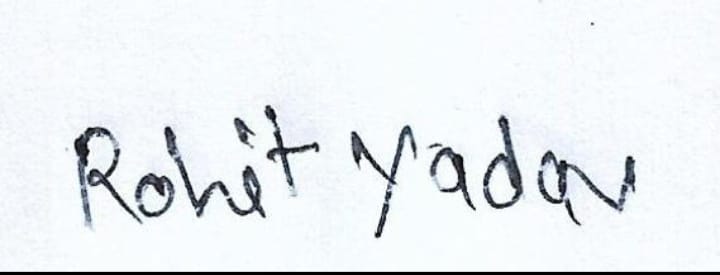 Rohit Yadav